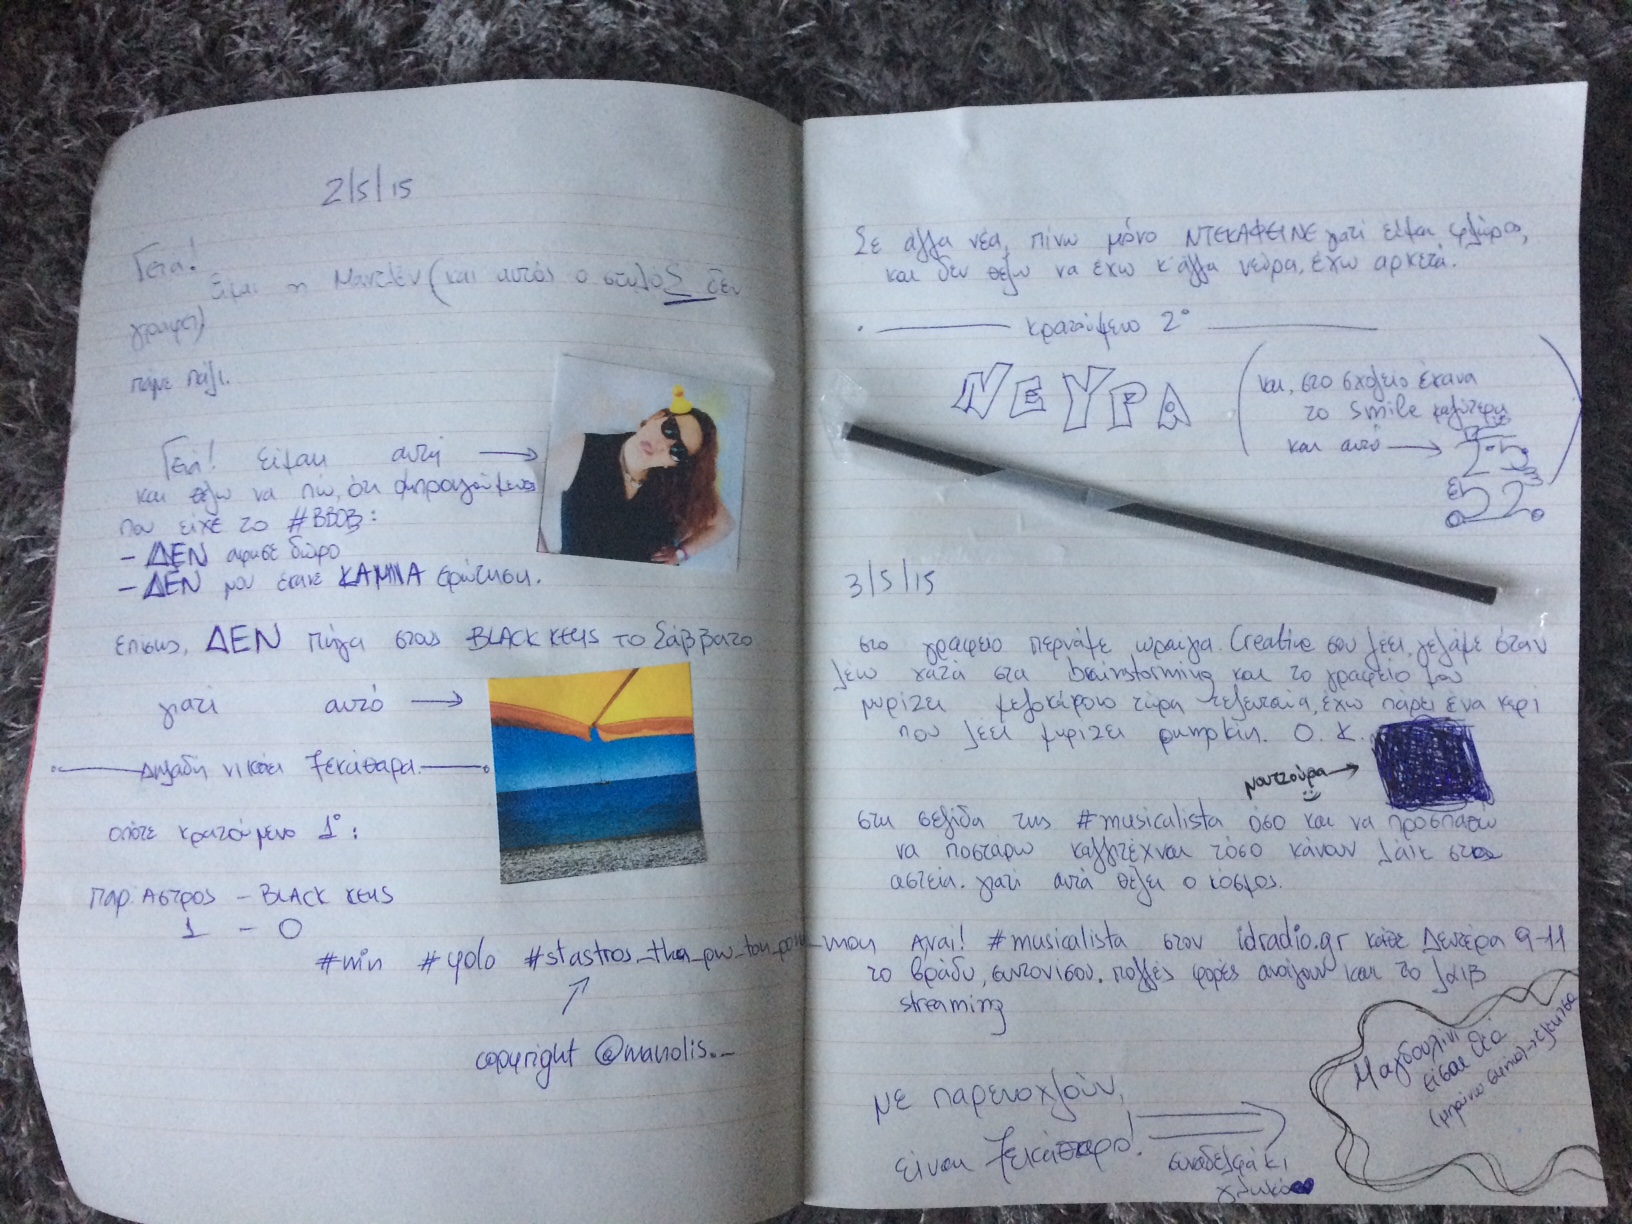 2/5/15
Γεια!
Είμαι η Μαντλέν (και αυτός ο στυλοΣ δεν
γραφει)
πάμε πάλι.
Γειά! είμαι αυτή →
και θέλω να πω, ότι
που είχε το #BBOB:
- ΔΕΝ άφησε δώρο
- ΔΕΝ μου έκανε ΚΑΜΙΑ ερώτηση.
επίσης, ΔΕΝ πήγα στους BLACK KEYS ΤΟ Σάββατο
γιατί αυτό →
Δηλαδή νικάει ξεκάθαρα.
οπότε κρατούμενο 1°:
ΠΑΡ. ΑΣΤΡΟΣ - BLACK KEYS
1 - 0
#min #yolo #stastros_tha_pw_ton_pono_mou
copyright @manolis._
Σε άλλα νέα, πίνω μόνο ΝΤΕΚΑΦΕΙΝΕ γιατί είμαι φλώρος,
και δεν θέλω να έχω κ'άλλα νεύρα, έχω αρκετά.
κρατούμενο 2°
ΝΕΥΡΑ
(και, στο σχολείο έκανα
το smile καλύτερη
και αυτό →
3/5/15
στο γραφείο περνάμε ωραία. Creative σου λέει, γελάμε όταν
λέω κάτι στα brainstorming και το γραφείο μου
μυρίζει μελοκάρυδο τώρα τελευταία, έχω πάρει ένα κερί
που λέει μυρίζει pumpkin. Ο.Κ.
μουτζούρα →
στη σελίδα της #musicalista όσο και να προσπαθώ
να ποστάρω καλλιτέχνες τόσο κάνουν λάικ στα
αστεία. γιατί αυτά θέλει ο κόσμος.
Αναι! #musicalista στον idradio.gr κάθε Δευτέρα 9-11
το βράδυ, συντονίσου. πολλές φορές ανοίγουν και το λάιβ
streaming
Με παρενοχλούν,
είναι ξεκάθαρο!
συναδελφάκι
γλυκό
Μαγδουλίνι
είσαι θεά